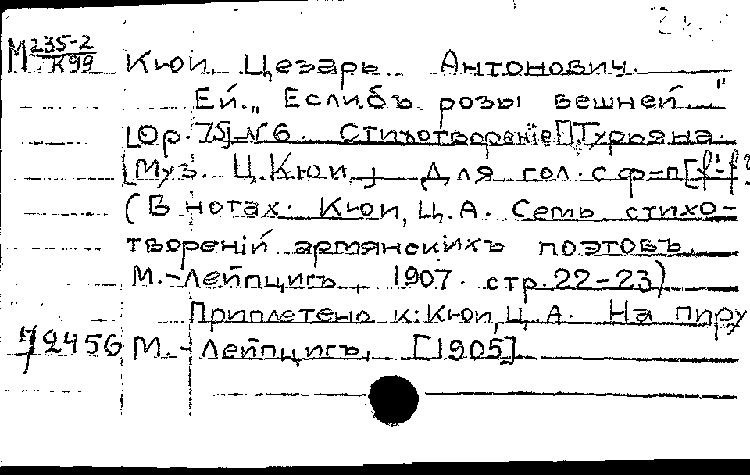 М 235-2
К 99
Кюи, Цезарь Антонович.
Ей. „Еслибъ розы вешней..."
[Ор. 75] №6. Стихотворение [] Турьяна.
[Муз. Ц. Кюи,] Для гол. с ф-п [f¹-f²
(В нотах: Кюи, Ц. А. Семь стихо-
творенiй армянскихъ поэтовъ.
М.-Лейпцигъ, 1907. стр. 22-23)
Приплетено к: Кюи, Ц. А. На пиру
72456 М. - Лейпцигъ, [1905]